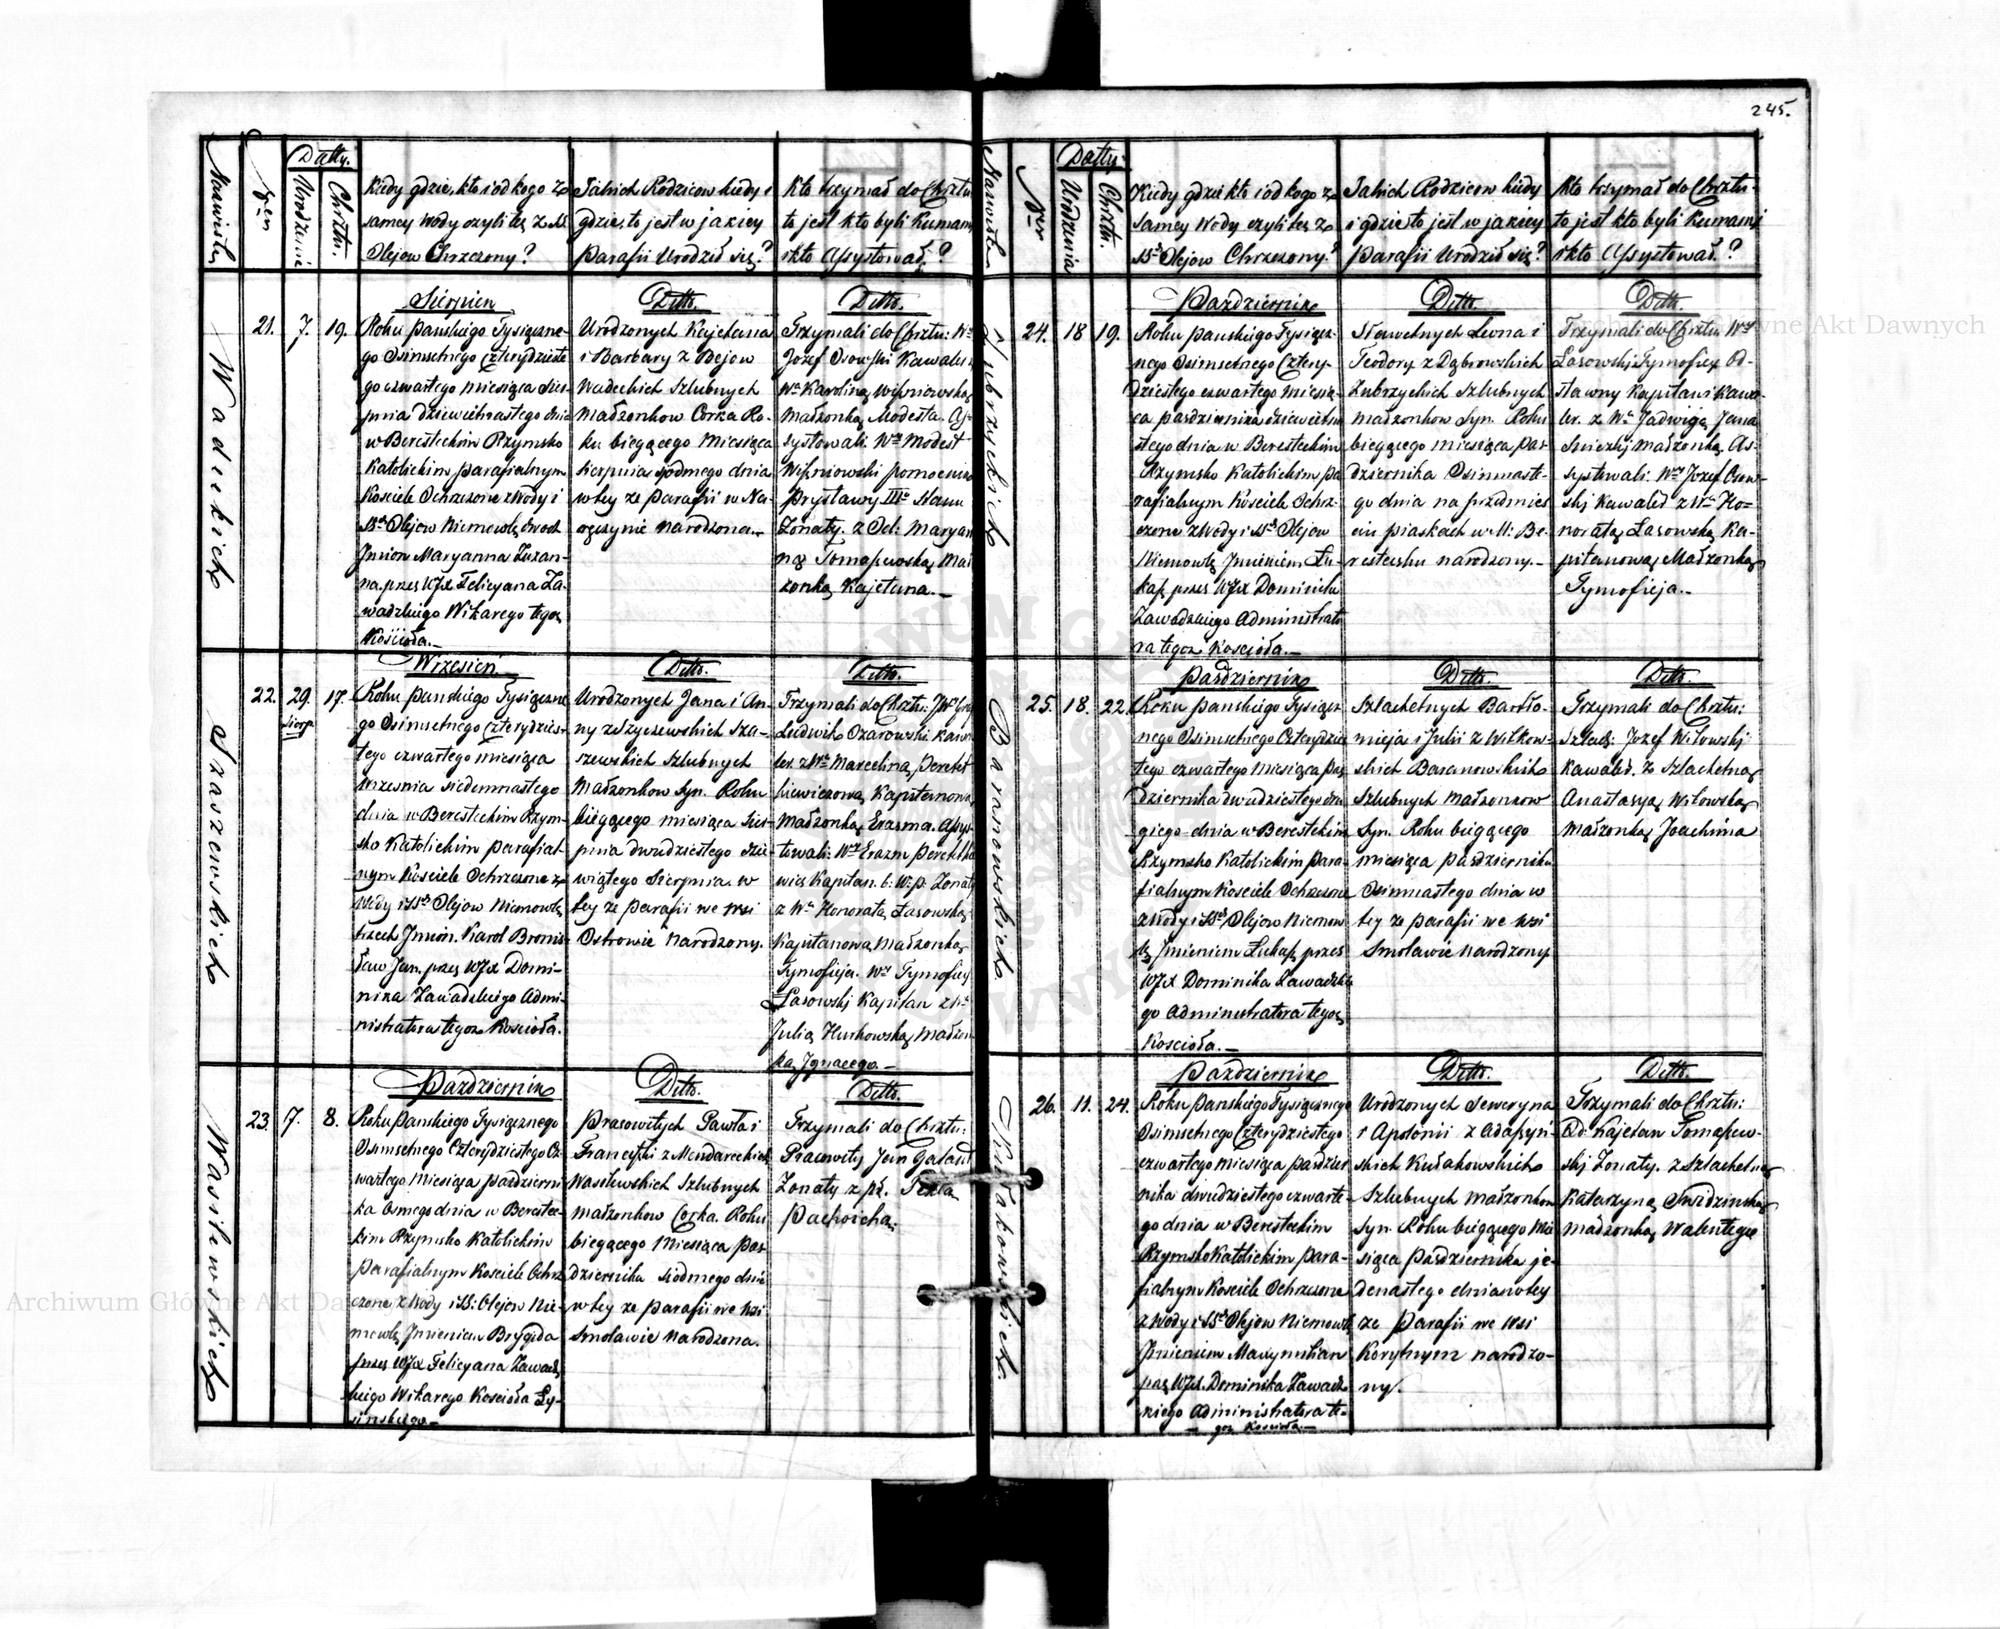 245.
Nazwiska
Ner
Datty.
Urodzenia
Chrztu.
Kiedy gdzie, kto i od kogo z
samey Wody czyli też z SS.
Olejow Chrzczony?
Jakich Rodzicow kiedy i
gdzie, to jest w jakiey
Parafii Urodził się?
Kto trzymał do Chrztu
to jest kto byli Kumami
i kto Assystował?
Wadeckich
21.
7.
19.
Sierpien
Roku Pańskiego Tysiączne-
go Osimsetnego Czterydzieste
go czwartego miesiąca Sier-
pnia dziewietnastego dnia
w Beresteckim Rzymsko
Katolickim parafialnym
Kościele Ochrzczone z Wody i
SS. Olejow Niemowlę dwoch
Imion Maryanna Zuzan-
na, przez WJX Felicyana Za-
wadzkiego Wikarego tegoż
Kościoła.-
Ditto.
Urodzonych Kajetana
i Barbary z Dejow
Wadeckich Szlubnych
Małżonkow Corka Ro-
ku biegącego Miesiąca
Sierpnia siodmego dnia
w tey ze Parafii w Na-
rodzona.-
Ditto.
Trzymali do Chrztu: Wny
Jozef Osowski Kawaler
Wna Karoliną Wiśniowską
Małżonką Modesta. As-
systowali: Wny Modest
Wiśniowski pomocnik
Prystawy IIIo Stanu
Zonaty. z Od: Maryan
ną Tomaszewską Mał
zonką Kajetana.-
Szaszewskich
22.
29.
Sierp.
17.
Wrzesień.
Roku Pańskiego Tysiączne
go Osimsetnego Czterydzies-
tego czwartego miesiąca
Wrzesnia siedemnastego
dnia w Beresteckim Rzym-
sko Katolickim parafial
nym Kościele Ochrzczone z
Wody i SS. Olejow Niemowlę
trzech Imion. Karol Bronis-
ław Jan. przez WJX Domi-
nika Zawadzkiego Admi-
nistratora tegoż Kościoła.
Ditto.
Urodzonych Jana i An-
ny z Szyszewskich Sza-
szewskich Szlubnych
Małżonkow Syn. Roku
biegącego miesiąca Sier-
pnia dwudziestego dzie-
wiątego Sierpnia. w
tey ze Parafii we Wsi
Ostrowie Narodzony.
Ditto.
Trzymali do Chrztu: JWny
Ludwik Ozarowski Kawa
ler. z Wna Marceliną
Kapitanową
Małżonką Erazma. Assys-
towali: Wny Erazm
Kapitan. b: W: p: Zonaty
z Wna Honoratą Lasowską
Kapitanową Małżonką
Tymofieja. Wny Tymofiey
Lasowski Kapitan z Wna
Julią Hurkowską Małżon
ką Ignacego.-
Wasilewskich
23.
7.
8.
Październik
Roku Pańskiego Tysiącznego
Osimsetnego Czterydziestego Cz
wartego Miesiąca październi
ka Osmego dnia w Berestec-
kim Rzymsko Katolickim
Parafialnym Kościele Ochrz
czone z Wody i SS: Olejow Nie-
mowlę Imieniem Brygida
przez WJX Felicyana Zawadz
kiego Wikarego Kościoła Ły-
sinskiego-
Ditto.
Pracowitych Pawła i
Franciszki z
Wasilewskich Szlubnych
Małżonkow Corka. Roku
biegącego Miesiąca Paz-
dziernika siodmego dnia
w tey ze Parafii we Wsi
Smolawie Narodzona.
Ditto.
Trzymali do Chrztu:
Pracowity Jan Galant
Zonaty z pr. Teklą
Nazwiska
Ner
Datty.
Urodzenia
Chrztu.
Kiedy gdzie kto i od kogo z
samey Wody czyli też z
SS. Olejow Chrzczony?
Jakich Rodzicow kiedy
i gdzie to jest w jakiey
Parafii Urodził się?
Kto trzymał do Chrztu
to jest kto byli Kumami
i kto Assystował?
Zubrzyckich
24.
18
19.
Październik
Roku Pańskiego Tysiącz-
nego Osimsetnego Cztery-
dziestego czwartego Miesią-
ca października dziewietna
stego dnia w Beresteckim
Rzymsko Katolickim Pa
rafialnym Kościele Ochrz-
czone z Wody i SS. Olejow
Niemowlę Imieniem Łu-
kasz przez WJX Dominika
Zawadzkiego Administrato
ra tegoż Kościoła.-
Ditto.
Sławetnych Leona i
Teodory z Dąbrowskich
Zubrzyckich Szlubnych
Małżonkow Syn. Roku
biegącego miesiąca Paz-
dziernika Osimnaste-
go dnia na przedmies
ciu piaskach w M: Be-
resteczku narodzony.-
Ditto.
Trzymali do Chrztu Wny
Lasowski Tymofiey Od-
stawny Kapitan i Kawa-
ler. z Wną Jadwigą Jana
Małżonką As-
systowali: Wny Jozef Osow-
ski Kawaler z Wną Ho-
noratą Lasowską Ka-
pitanową Małżonką
Tymofieja.-
Baranowskich
25.
18.
22.
Październik
Roku Pańskiego Tysiącz
nego Osimsetnego Czterydzies
tego czwartego Miesiąca Paz
dziernika dwudziestego dru
giego dnia w Beresteckim
Rzymsko Katolickim Para-
fialnym Kościele Ochrzczone
z Wody i SS. Olejow Niemow
lę Imieniem Łukasz przez
WJX Dominika Zawadzkie
go Administratora tegoż
Kościoła.-
Ditto.
Szlachetnych Bartło-
mieja i Julii z Witkow-
skich Baranowskich
Szlubnych Małżonkow
Syn. Roku biegącego
miesiąca października
Osimnastego dnia w
tey ze Parafii we Wsi
Smolawie Narodzony
Ditto.
Trzymali do Chrztu:
Szlach: Jozef Witowski
Kawaler. z Szlachetną
Anastazyą Witowską
Małżonką Joachima
Kułakowskich
26.
11.
24.
Październik
Roku Pańskiego Tysiącznego
Osimsetnego Czterydziestego
czwartego Miesiąca paździer
nika dwudziestego czwarte-
go dnia w Beresteckim
Rzymsko Katolickim Para-
fialnym Kościele Ochrzczone
z Wody i SS. Olejow Niemowlę
Imieniem Maxymilian
przez WJX. Dominika Zawadz
kiego Administratora te-
goż Kościoła.-
Ditto.
Urodzonych Seweryna
i Apolonii z Adaszyń-
skich Kułakowskich
Szlubnych Małżonkow
Syn. Roku biegącego Mie
siąca Października je-
denastego dnia w tey
ze Parafii we Wsi
Korytnym narodzo-
ny.
Ditto.
Trzymali do Chrztu:
Od. Kajetan Tomaszew-
ski Zonaty. z Szlachetną
Katarzyną Swidzinską
Małżonką Walentego
Archiwum Główne Akt Dawnych
Archiwum Główne Akt Dawnych